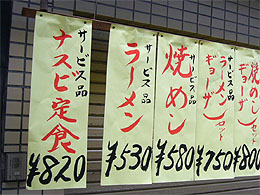 サービス品
ナスビ定食
¥820
サービス品
ラーメン
¥530
サービス品
焼めし
¥580
ラーメン
ギョーザ
セット
¥750
焼めし
ギョーザ
セット
¥800